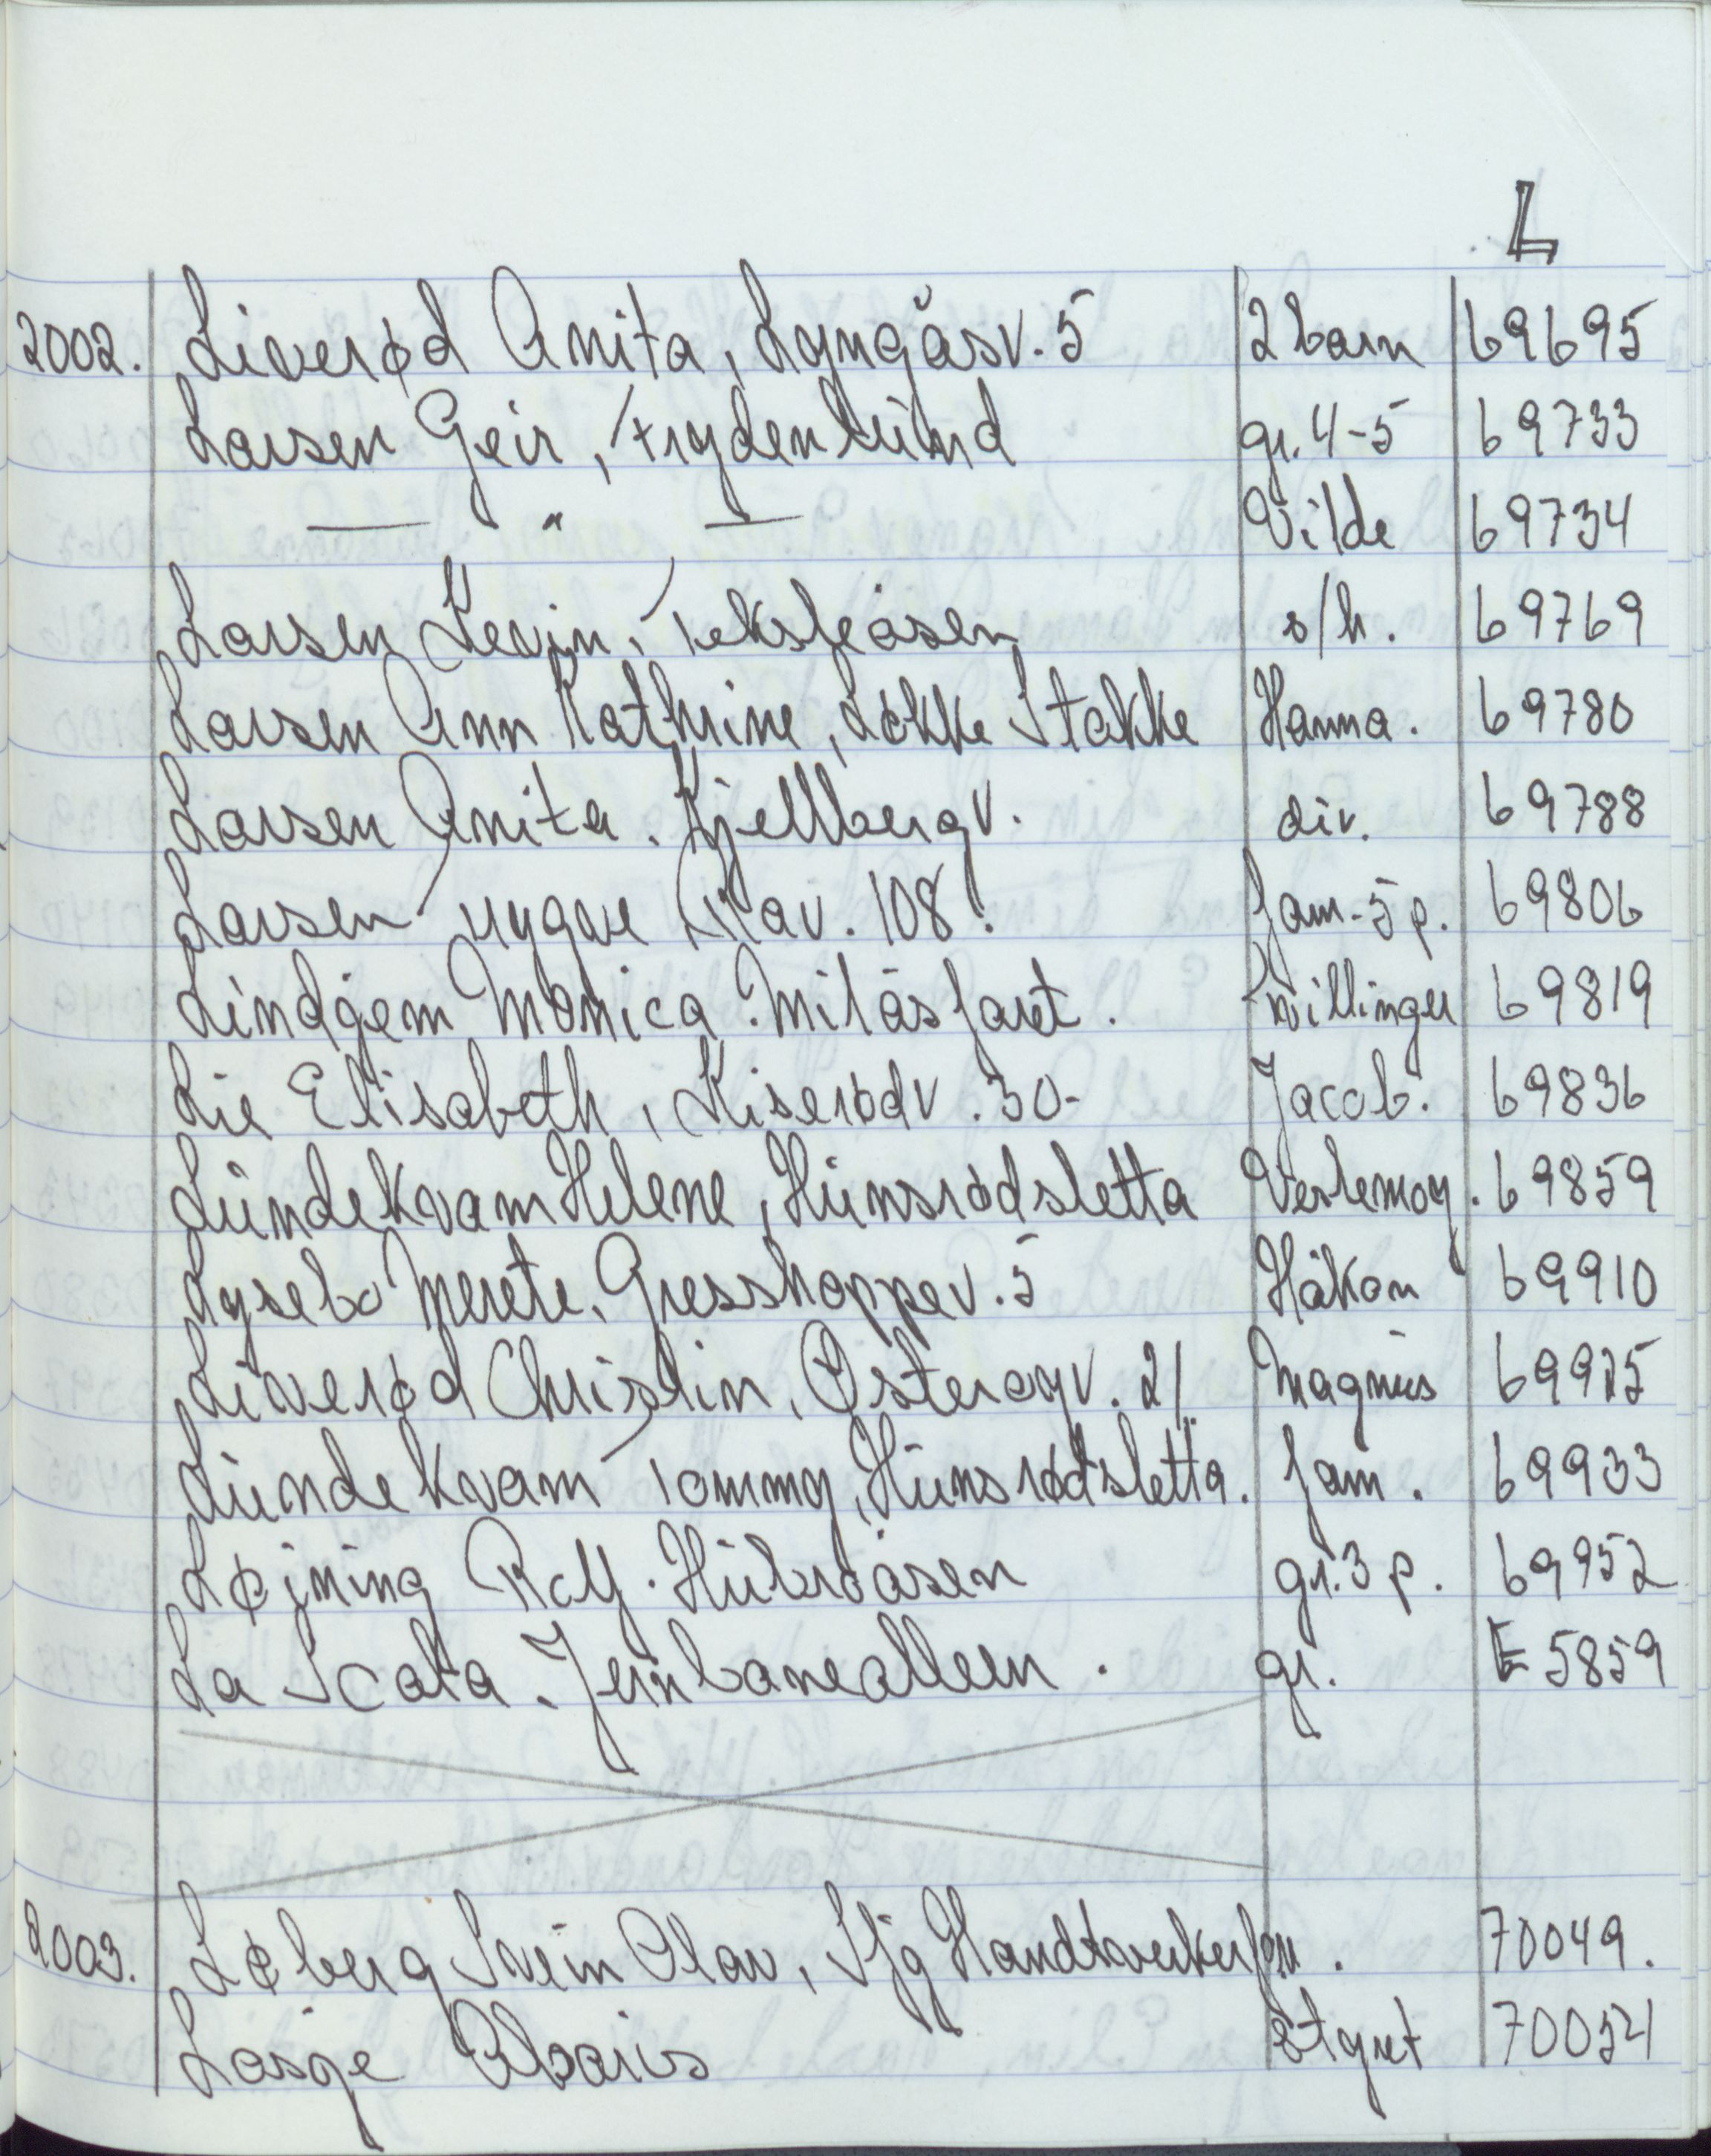 L
2002. Liverød Anita, Lyngåsv. 5 2 barn 69695
Larsen Geir, Frydenlund gr. 4-5 69733
— " — Vilde 69734
Larsen Kevin, Tekslеåsen s/h. 69769
Larsen Ann Kathrine, Løkke Stakke Hanna. 69780
Larsen Anita. Kjellbergv. div. 69788
Larsen Trygve, Rav. 108. fam-5 p. 69806
Lindgjem Monica. Milåsfaret. tvillinger 69819
Lie Elisabeth, Kiserødv. 30- Jacob. 69836
Lundekvam Helene, Hunsrødsletta Veslemøy. 69859
Lysebo Merete, Gresshoppev. 5 Håkon 69910
Liverød Christin, Østerøyv. 21 Magnus 69925
Lundekvam Tommy, Hunsrødsletta. fam. 69933
Løjning Rolf. Hubroåsen gr. 3 p. 69952
La Scala. Jernbanealleen. gr. E 5859
2003. Løberg Svein Olav, Sfj Håndtverkerfor. 70049.
Lasge Abaris 70054